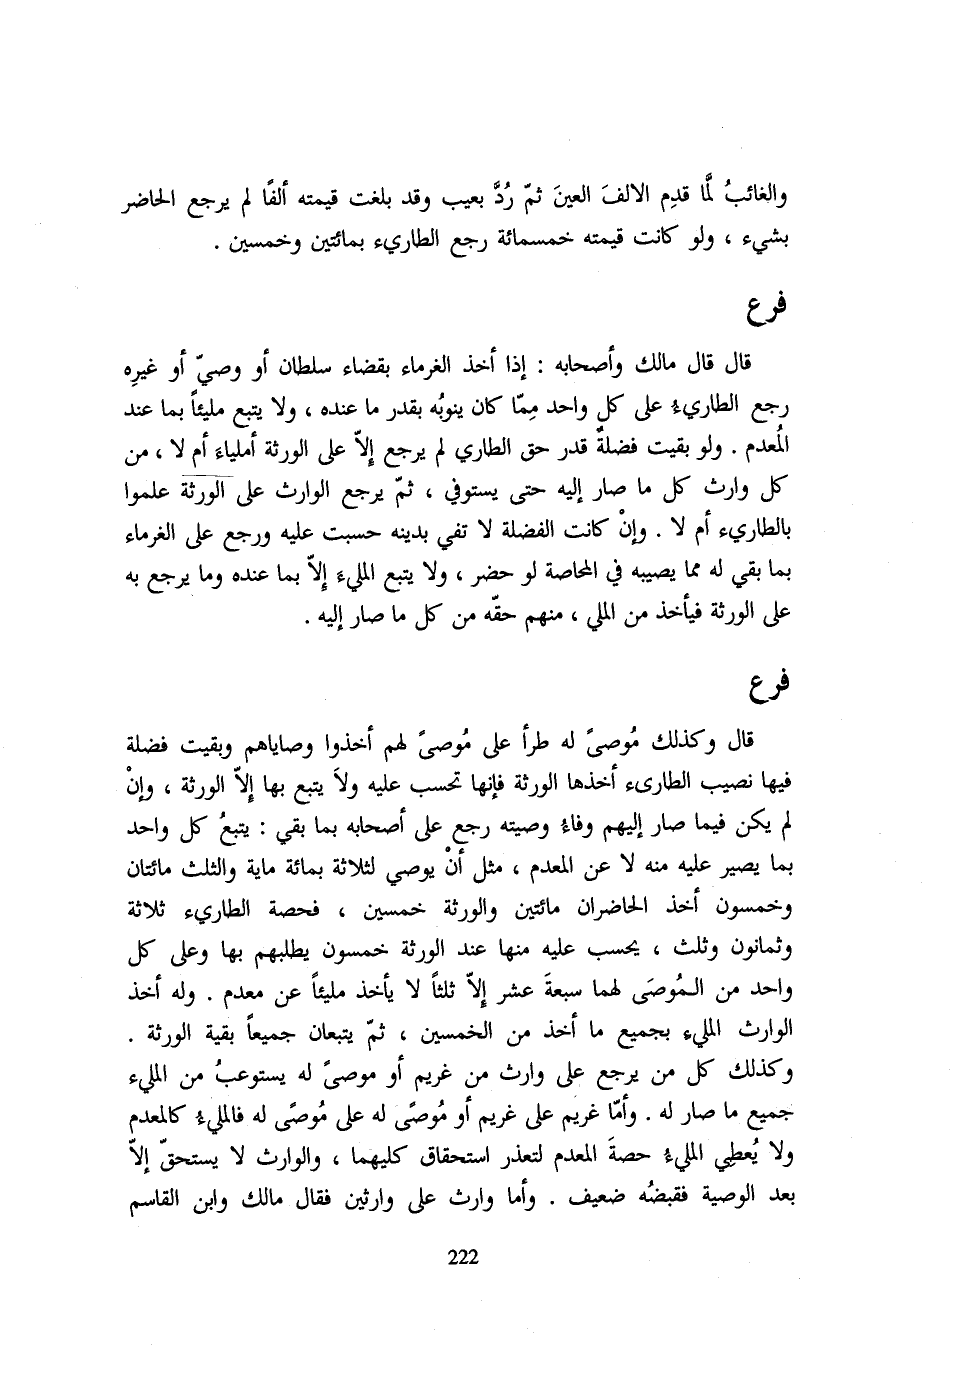 والغائبُ لمَّا قدِم الالفَ العينَ ثمّ رُدَّ بعيب وقد بلغت قيمته ألفًا لم يرجع الحاضر
بشيء ، ولو كانت قيمته خمسمائة رجع الطاريء بمائتين وخمسين .
فرع
قال قال مالك وأصحابه : إذا أخذ الغرماء بقضاء سلطان أو وصيّ أو غيرِه
رجع الطاريءُ على كل واحد مِمّا كان ينوبُه بقدر ما عنده ، ولا يتبع مليئاً بما عند
المُعدم . ولو بقيت فضلةٌ قدر حق الطاري لم يرجع إلاّ على الورثة أملياءَ أم لا ، من
كل وارث كل ما صار إليه حتى يستوفي ، ثمّ يرجع الوارث على الورثة علموا
بالطاريء أم لا . وإنْ كانت الفضلة لا تفي بدينه حسبت عليه ورجع على الغرماء
بما بقي له مما يصيبه في المحاصة لو حضر ، ولا يتبع المليءَ إلاّ بما عنده وما يرجع به
على الورثة فيأخذ من الملي ، منهم حقّه من كل ما صار إليه .
فرع
قال وكذلك مُوصىً له طرأ على مُوصىً لهم أخذوا وصاياهم وبقيت فضلة
فيها نصيب الطارىء أخذها الورثة فإنها تحسب عليه ولاَ يتبع بها إلاّ الورثة ، وإنْ
لم يكن فيما صار إليهم وفاءُ وصيته رجع على أصحابه بما بقي : يتبعُ كل واحد
بما يصير عليه منه لا عن المعدم ، مثل أنْ يوصي لثلاثة بمائة ماية والثلث مائتان
وخمسون أخذ الحاضران مائتين والورثة خمسين ، فحصة الطاريء ثلاثة
وثمانون وثلث ، يحسب عليه منها عند الورثة خمسون يطلبهم بها وعلى كل
واحد من المُوصَى لهما سبعةَ عشر إلاّ ثلثاً لا يأخذ مليئاً عن معدم . وله أخذ
الوارث المليء بجميع ما أخذ من الخمسين ، ثمّ يتبعان جميعاً بقية الورثة .
وكذلك كل من يرجع على وارث من غريم أو موصىً له يستوعبُ من المليء
جميع ما صار له . وأمّا غريم على غريم أو مُوصًى له على مُوصًى له فالمليءُ كالمعدم
ولا يُعطِي المليءُ حصةَ المعدم لتعذر استحقاق كليهما ، والوارث لا يستحقّ إلاّ
بعد الوصية فقبضُه ضعيف . وأما وارث على وارثين فقال مالك وابن القاسم
222